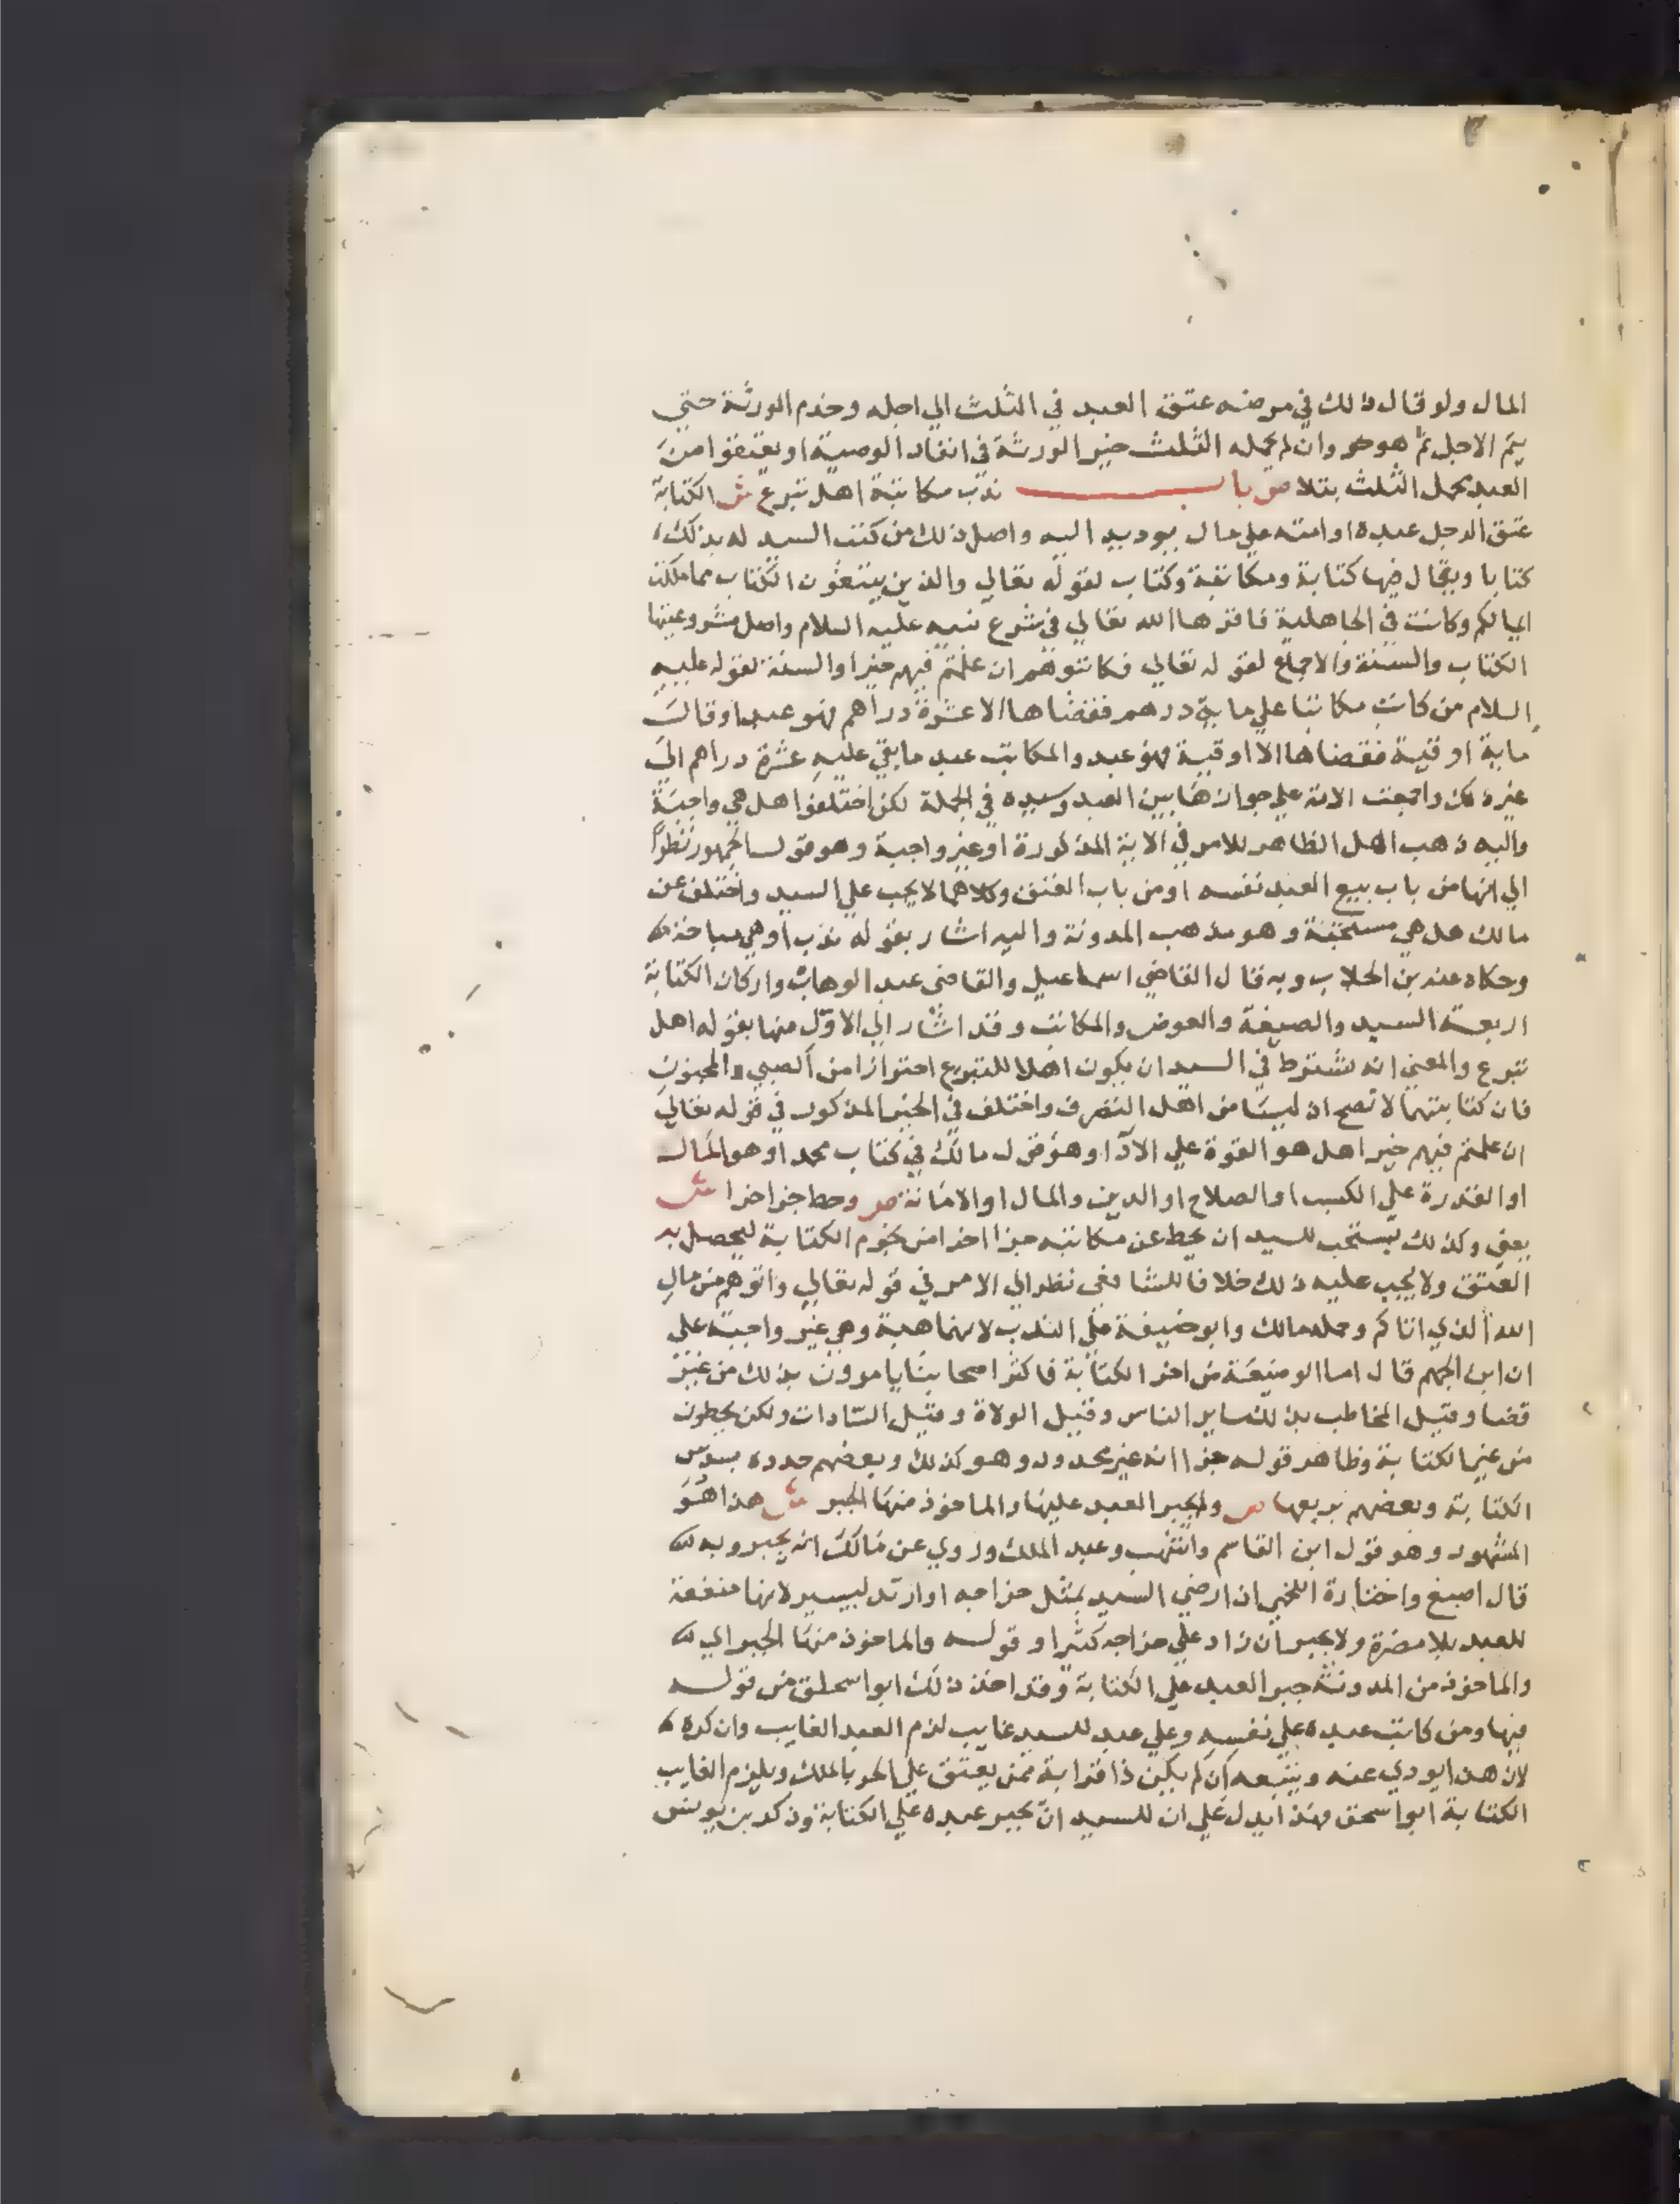 المال ولو قال ذلك في مرضه عتق العبد في الثلث الي اجله وخدم الورثة حتي
يتم الاجل ثم هو حر وان لم يحمله الثلث خير الورثة في انفاد الوصية او يعتقوا من
العبد محمل الثلث بتلا ص باب ندب مكاتبة اهل تبرع ش الكتابة
عتق الرجل عبده او امته علي مال يوديه اليه واصل ذلك من كتب السيد له بذلك
كتابا ويقال فيها كتابة ومكاتبة وكتاب لقوله تعالي والذين يبتغون الكتاب مما ملكت
ايمانكم وكانت في الجاهلية فاقرها الله تعالي في شرع نبيه عليه السلام واصل مشروعيتها
الكتاب والسنة والاجماع لقوله تعالي فكاتبوهم ان علمتم فيهم خيرا والسنة لقوله عليه
السلام من كانت مكاتبا علي ماية درهم فقضاها الا عشرة دراهم فهو عبد او قال
ماية اوقية فقضاها الا اوقية فهو عبد والمكاتب عبد ما بقي عليه عشرة دراهم الي
غيره لك واجمعت الامة علي جوازها بين العبد وسيده في الجملة لكن اختلفوا هل هي واجبة
واليه ذهب اهل الظاهر للامر في الاية المذكورة او غير واجبة وهو قول الجمهور نظرا
الي انها من باب بيع العبد نفسه او من باب العتق وكلاهما لا يجب علي السيد واختلف عن
مالك هل هي مستحبة وهو مذهب المدونة واليه اشار بقوله ندب او هي مباحة
وحكاه عنه بن الجلاب وبه قال القاضي اسماعيل والقاضي عبد الوهاب واركان الكتابة
اربعة السيد والصيغة والعوض والمكاتب وقد اشار الي الاول منها بقوله اهل
تبرع والمعني انه يشترط في السيد ان يكون اهلا للتبرع احترازا من الصبي والمجنون
فان كتابتهما لا تصح اذ ليسا من اهل التصرف واختلف في الخير المذكور في قوله تعالي
ان علمتم فيهم خيرا هل هو القوة علي الادا وهو قول مالك في كتاب محمد او هو المال
او القدرة علي الكسب او الصلاح او الدين والمال او الامانة ص وحط جزا اخرا ش
يعني وكذلك يستحب للسيد ان يحط عن مكاتبه جزا اخرا من نجوم الكتابة ليحصل به
العتق ولا يجب عليه ذلك خلافا للشافعي نظرا الي الامر في قوله تعالي واتوهم من مال
الله الذي اتاكم وحمله مالك وابو حنيفة علي الندب لانها هبة وهي غير واجبة علي
ان ابن الجهم قال اما الوضيعة من اخر الكتابة فاكثر اصحابنا يامرون بذلك من غير
قضا وقيل المخاطب بذلك ساير الناس وقيل الولاة وقيل السادات ولكن يحطون
من غير الكتابة وظاهر قوله جزا انه غير محدود وهو كذلك وبعضهم حدده بسدس
الكتابة وبعضهم بربعها ص ولم يجبر العبد عليها والماخوذ منها الجبر ش هذا هو
المشهور وهو قول ابن القاسم واشهب وعبد الملك وروي عن مالك انه يجبر وبه
قال اصبغ واختاره اللخمي ان ارضي السيد بمثل خراجه او ازيد بيسير لانها منفعة
للعبد بلا مضرة ولا يجبر ان زاد علي خراجه كثيرا وقوله والماخوذ منها الجبر اي
والماخوذ من المدونة جبر العبد علي الكتابة وقد اخذ ذلك ابو اسحق من قوله
فيها ومن كاتب عبده علي نفسه وعلي عبد للسيد غايب لزم العبد الغايب وان كره
لان هذا يودي عنه ويتبعه ان لم يكن ذا قرابة ممن يعتق علي الحر بالملك ويلزم الغايب
الكتابة ابو اسحق وهذا يدل علي ان للسيد ان يجبر عبده علي الكتابة وذكر بن يونس